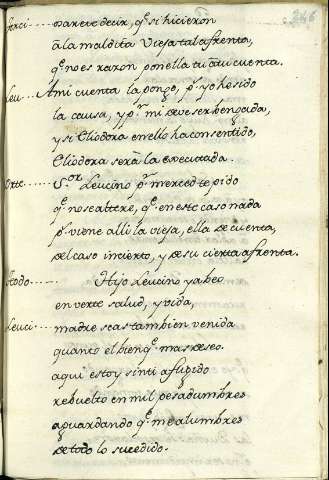 246
Herci .... Pareve decir, q̃. si hicieron
a la maldita Vieja tal afrenta,
q̃. no es razon ponella tu à mi cuenta.
Leu ... A mi cuenta la pongo, p.r yo he sido
la causa, y p.r mi deve ser bengada,
y si Eliodora en ello ha consentido,
Eliodora serà la executada.
Orte ...... S.or Leucino p.r merced te pido
q̃. no se altere, q̃. en este caso nada
p.r viene alli la vieja, ella de cuenta,
del caso incierto, y de su cierta afrenta.
Hijo Leucino ya beo
en verte salud, y vida,
Leuci .... madre seas tambien venida
quanto el bien q̃. mas deseo.
aqui estoy sin ti afligido
rebuelto en mil pesadumbres
aguardando q̃. me alumbres
de todo lo sucedido.